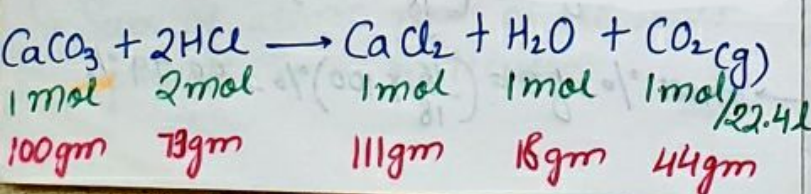 CaCO₃ + 2HCl → CaCl₂ + H₂O + CO₂(g)
1 mol 2mol 1mol 1mol 1mol/22.4l
100gm 73gm 111gm 18gm 44gm